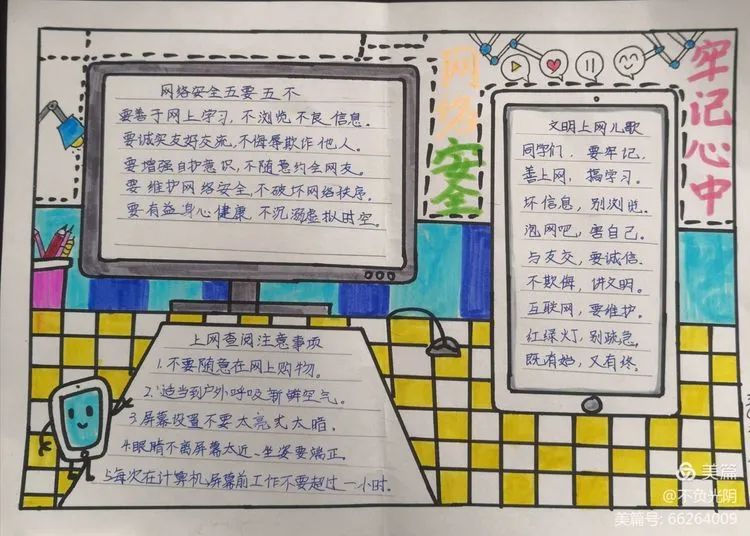 网络安全
牢记心中
网络安全五要五不
要善于网上学习，不浏览不良信息。
要诚实友好交流，不侮辱欺诈他人。
要增强自护意识，不随意约会网友。
要维护网络安全，不破坏网络秩序。
要有益身心健康，不沉溺虚拟时空。
文明上网儿歌
同学们，要牢记，
善上网，搞学习。
坏信息，别浏览。
泡网吧，害自己。
与友交，要诚信。
不欺侮，讲文明。
互联网，要维护。
红绿灯，别疏忽，
既有始，又有终。
上网查阅注意事项
1.不要随意在网上购物。
2.适当到户外呼吸新鲜空气。
3.屏幕设置不要太亮或太暗.
4.眼睛不离屏幕太近、坐姿要端正.
5.每次在计算机屏幕前工作不要超过一小时.
美篇
@不负光阴
美篇号: 66264009